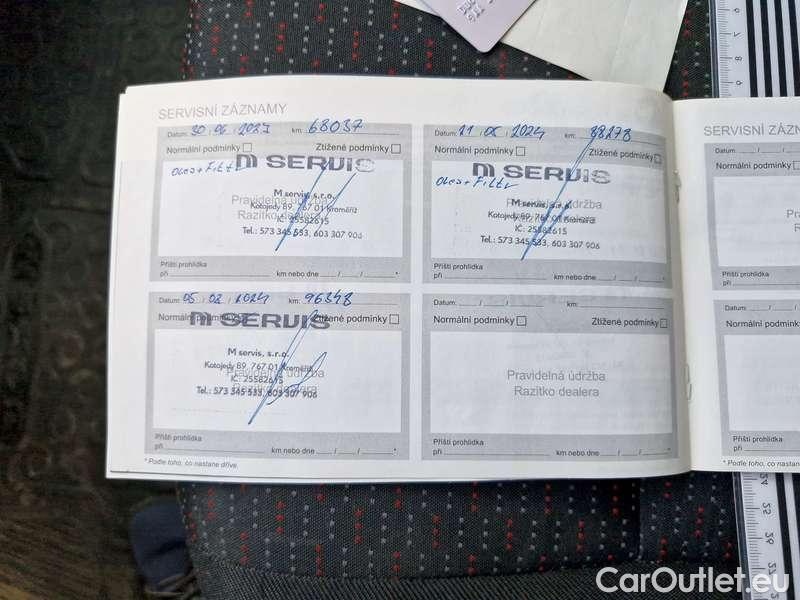 SERVISNÍ ZÁZNAMY
Datum: 30 / 06 / 2023 km: 68037
Normální podmínky Ztížené podmínky
M SERVIS
OLEJ + FILTR
M servis, s.r.o.
Pravidelná údržba
Kotojedy 89, 767 01 Kroměříž
Razítko dealera
IČ: 25582615
Tel.: 573 345 533, 603 307 906
Příští prohlídka
při km nebo dne / / *
Datum: 11 / 05 / 2024 km: 88278
Normální podmínky Ztížené podmínky
M SERVIS
OLEJ + FILTR
M servis, s.r.o.
Pravidelná údržba
Kotojedy 89, 767 01 Kroměříž
Razítko dealera
IČ: 25582615
Tel.: 573 345 533, 603 307 906
Příští prohlídka
při km nebo dne / / *
Datum: 05 / 02 / 2024 km: 96348
Normální podmínky Ztížené podmínky
M SERVIS
M servis, s.r.o.
Kotojedy 89, 767 01 Kroměříž
Pravidelná údržba
IČ: 25582615
Razítko dealera
Tel.: 573 345 533, 603 307 906
Příští prohlídka
při km nebo dne / / *
Datum: / / km:
Normální podmínky Ztížené podmínky
Pravidelná údržba
Razítko dealera
Příští prohlídka
při km nebo dne / / *
* Podle toho, co nastane dříve.
SERVISNÍ ZÁZN
Datum: / /
Normální podmínky
Pra
R
Příští prohlídka
při
Datum: / /
Normální podmínky
Pra
R
Příští prohlídka
při
* Podle toho, co nastane
CarOutlet.eu